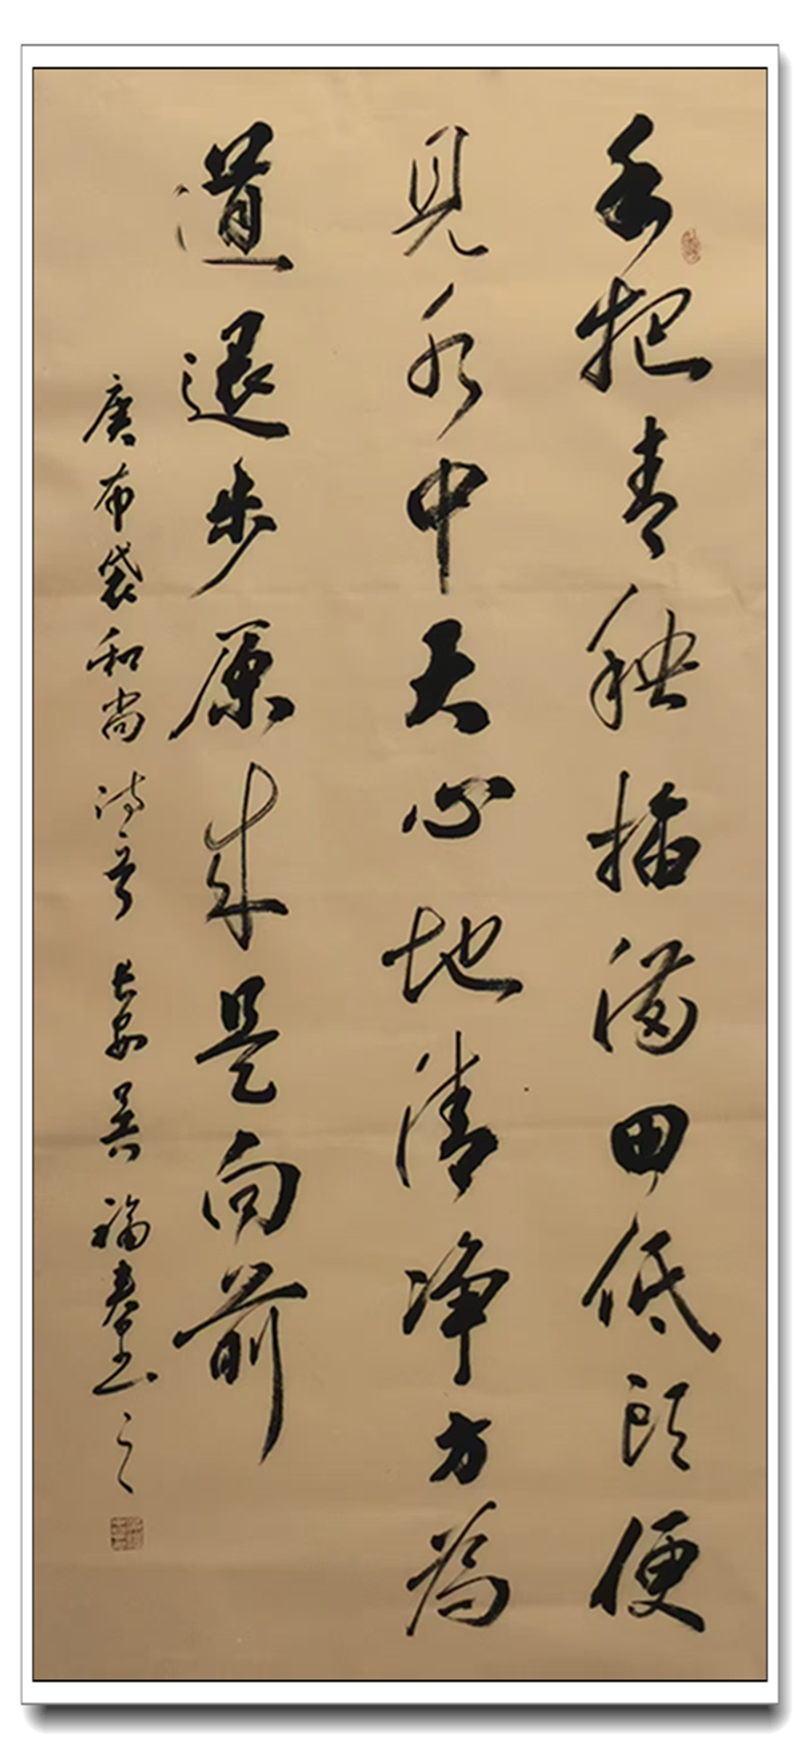 手把青秧插满田低头便
见水中天心地清净方为
道退步原来是向前
唐布袋和尚诗一首长安吴福春书之